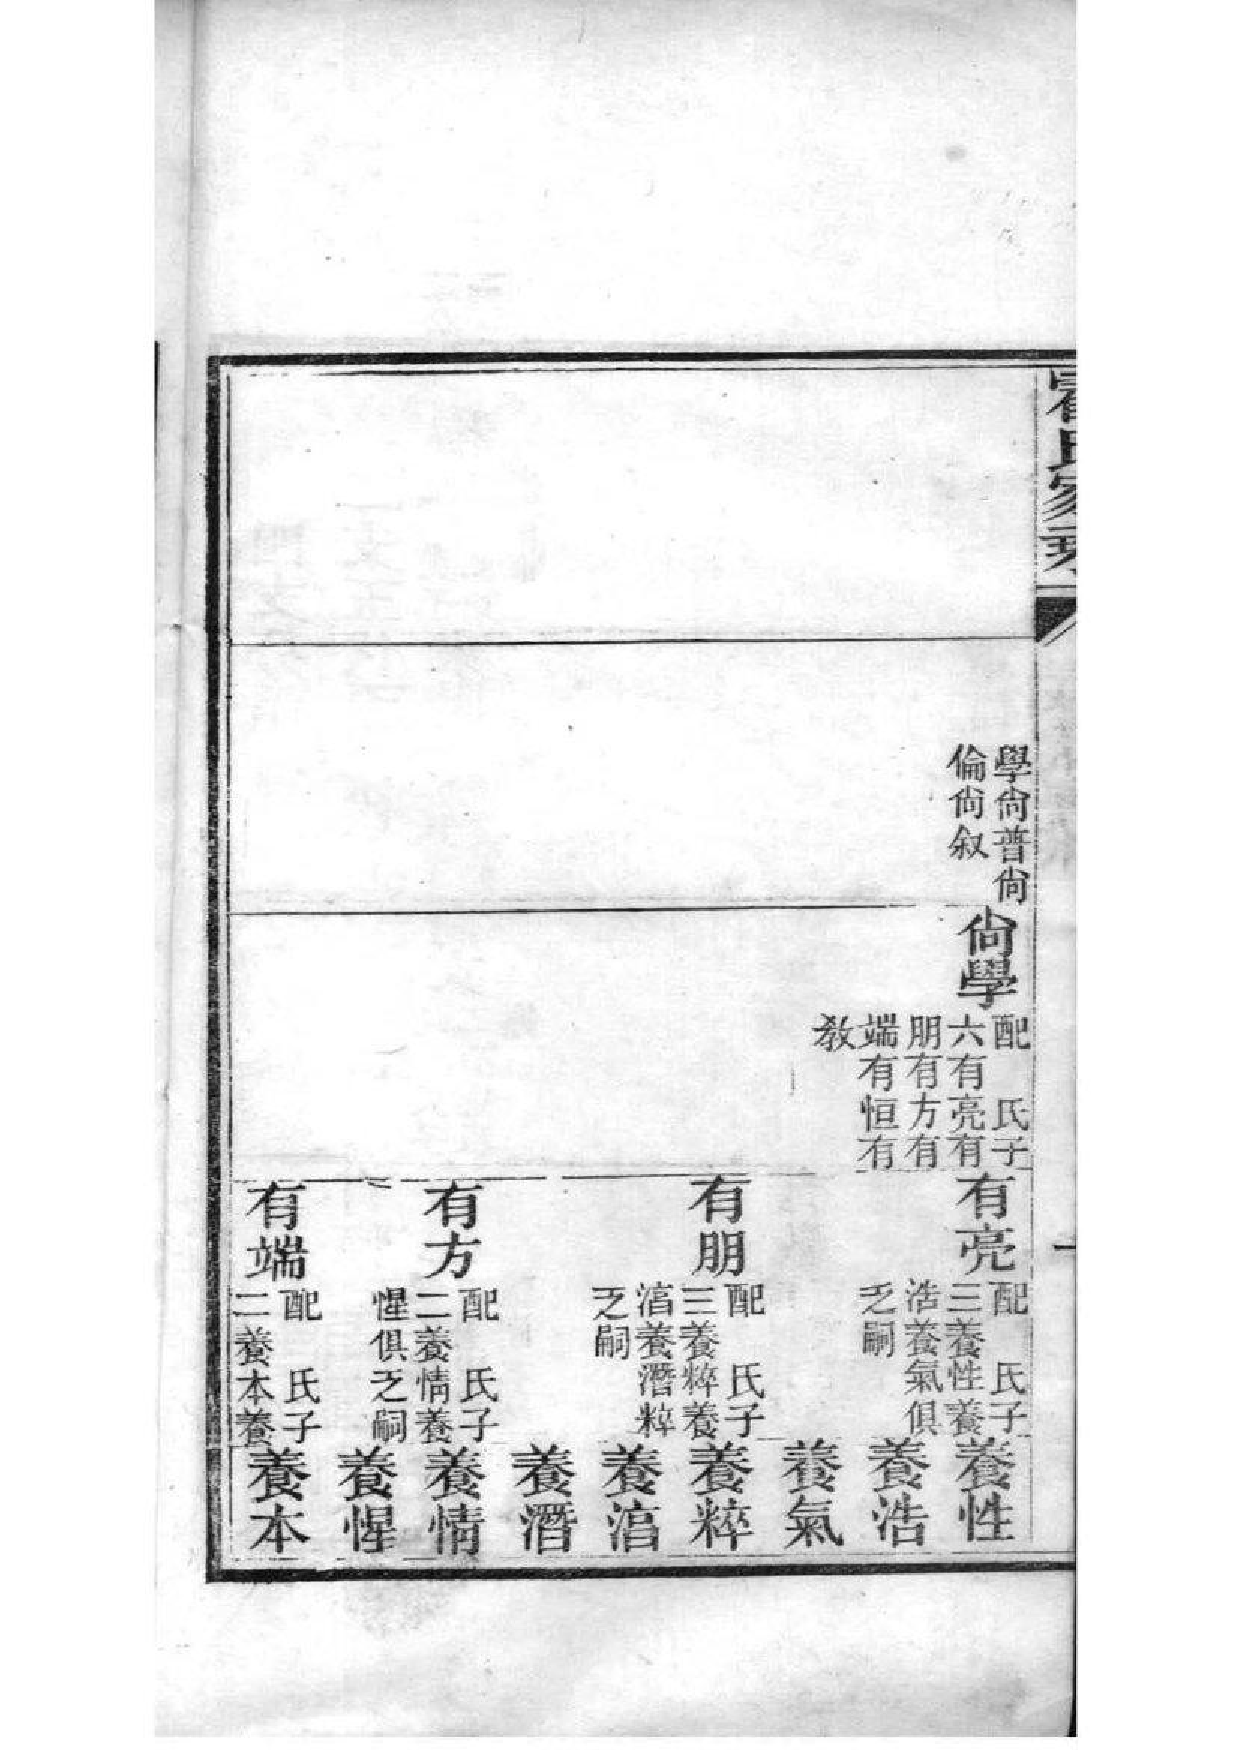 霍氏家乘
一
學尙普尙
倫尙叙
尙學
配　氏子
六有亮有
朋有方有
端有恒有
教
有亮
配　氏子
三養性養
浩養氣俱
乏嗣
有朋
配　氏子
三養粹養
湻養潛粹
乏嗣
有方
配　氏子
二養情養
惺俱乏嗣
有端
配　氏子
二養本養
養性
養浩
養氣
養粹
養湻
養潛
養情
養惺
養本